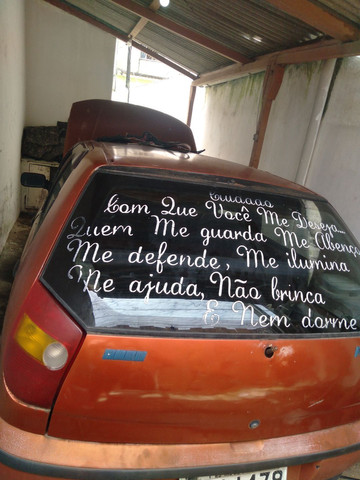 Cuidado
Com Que Você Me Deseja...
Quem Me guarda Me Abenço
Me defende, Me ilumina
Me ajuda, Não brinca
E Nem dorme